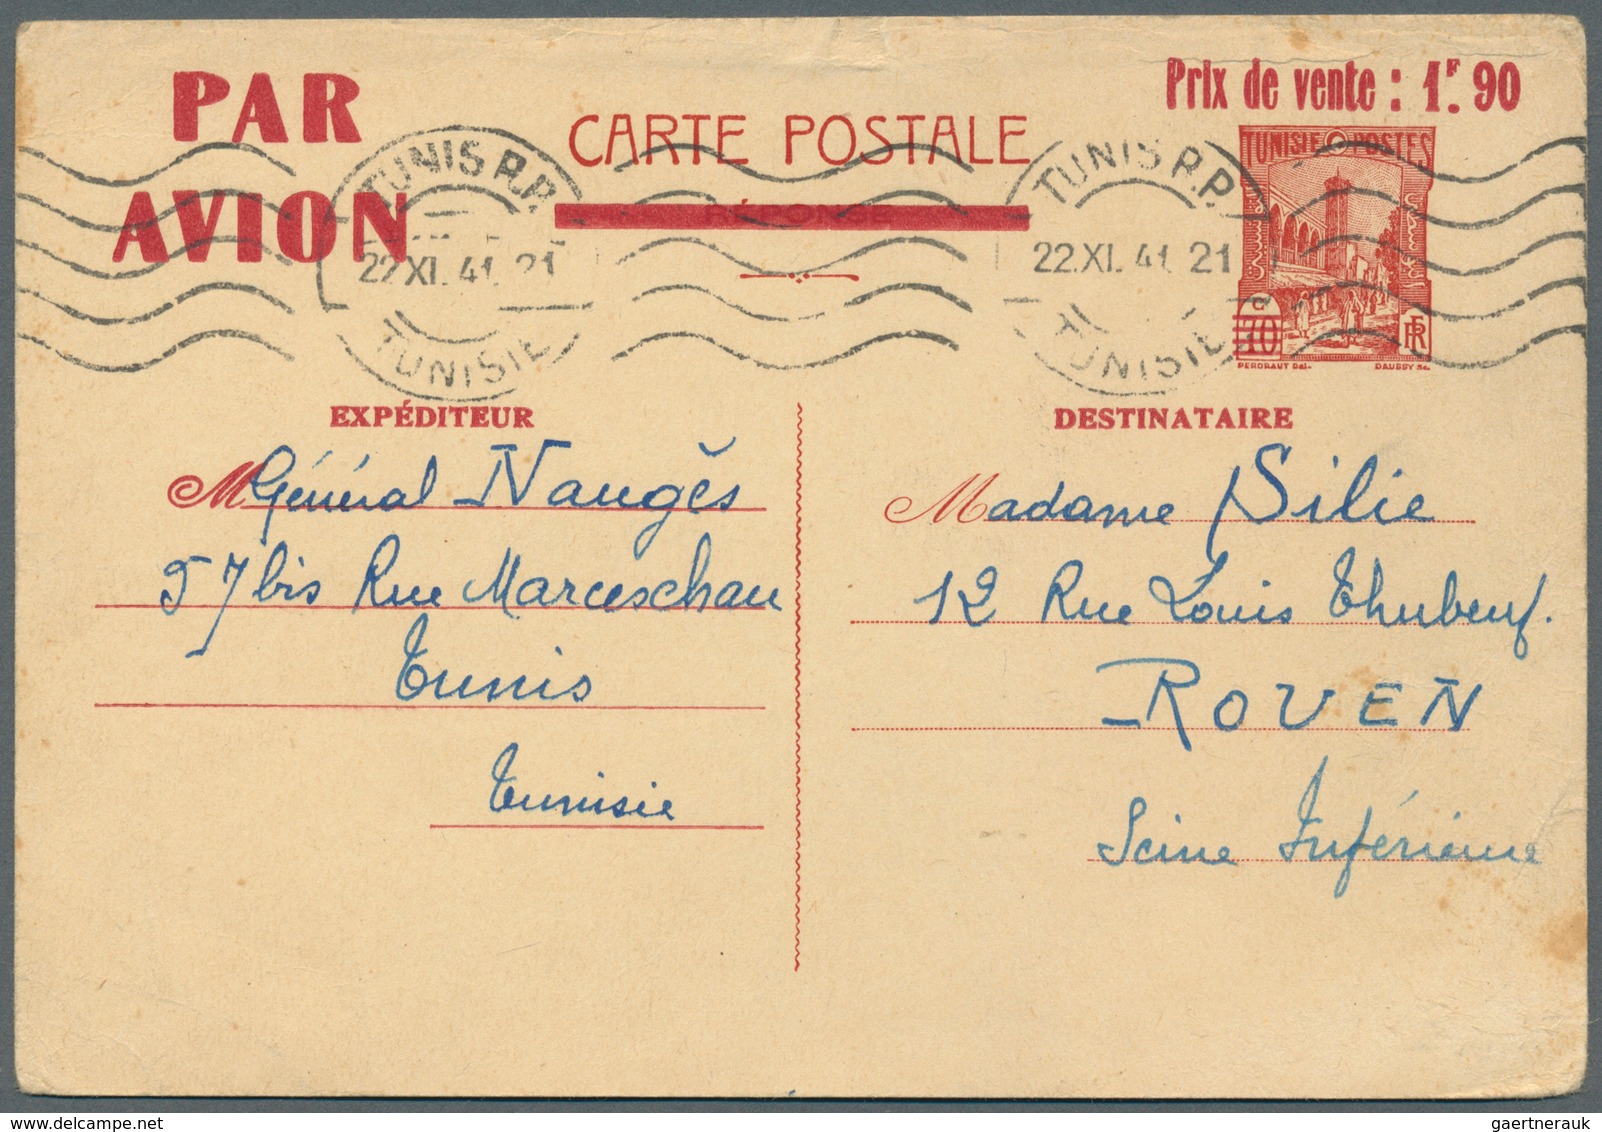 PAR
AVION
CARTE POSTALE
RÉPONSE
Prix de vente : 1F. 90
TUNISIE POSTES
TUNIS R.P.
22 XI. 41 21
TUNISIE
TUNIS R.P.
22.XI. 41 21
TUNISIE
c
70
RF
DAUSSY Sc.
EXPÉDITEUR
M Général Naugès
57 bis Rue Marceschau
Tunis
Tunisie
DESTINATAIRE
Madame Silie
12 Rue Louis Thubeuf.
ROUEN
Seine Inférieure
gaertnerauk